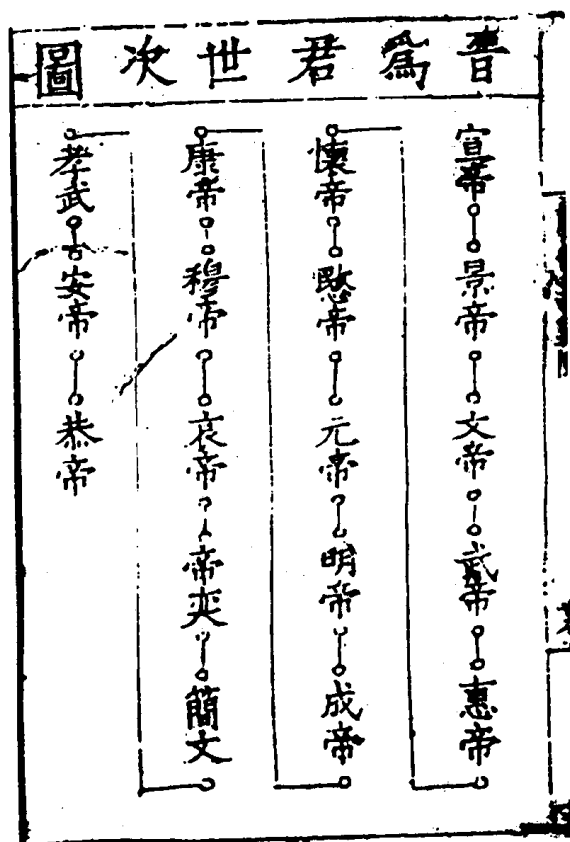 晉爲君世次圖
宣帝 景帝 文帝 武帝 惠帝
懷帝 愍帝 元帝 明帝 成帝
康帝 穆帝 哀帝 帝奕 簡文
孝武 安帝 恭帝